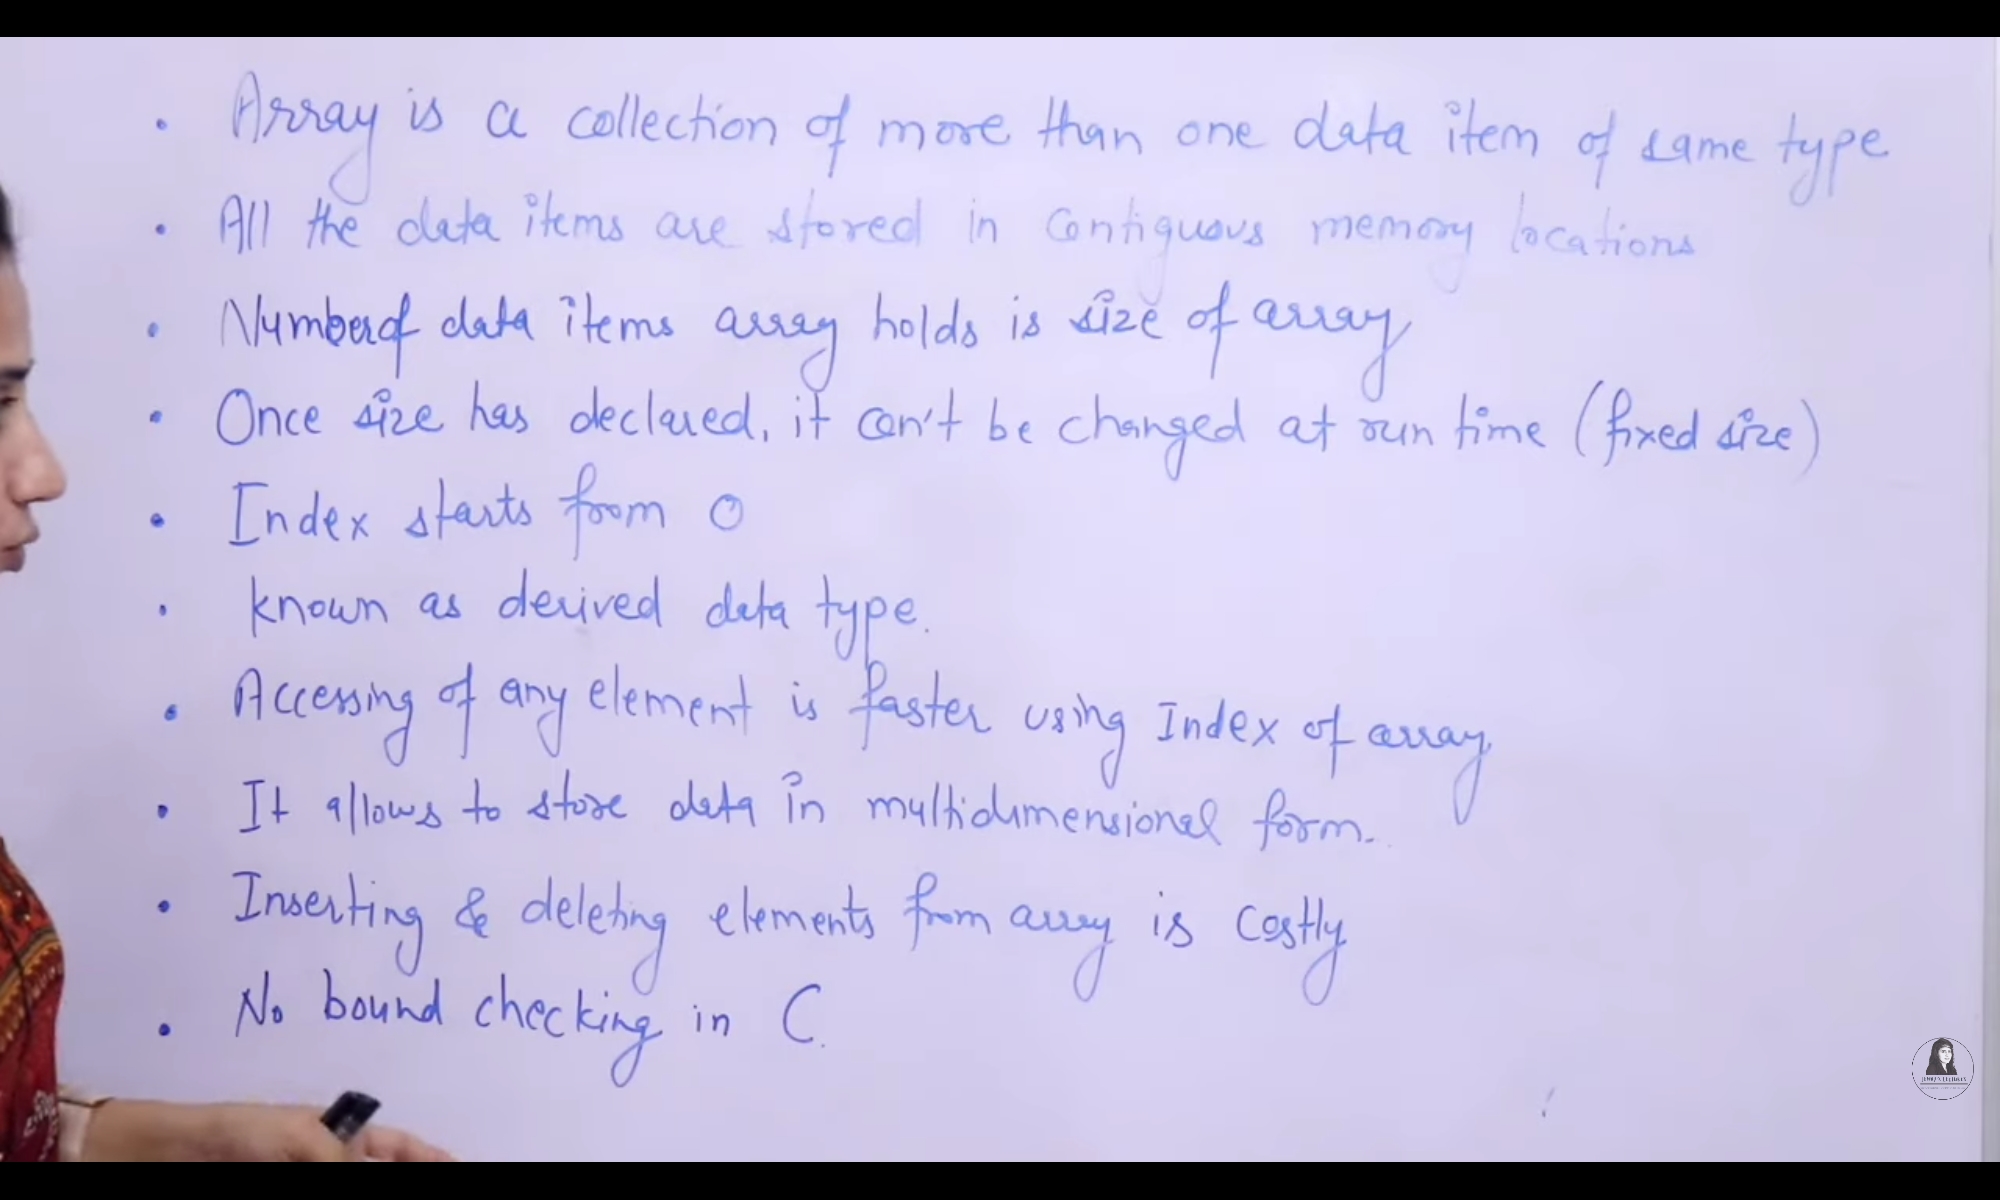 • Array is a collection of more than one data item of same type
• All the data items are stored in contiguous memory locations
• Number of data items array holds is size of array
• Once size has declared, it can't be changed at run time (fixed size)
• Index starts from 0
• known as derived data type.
• Accessing of any element is faster using Index of array
• It allows to store data in multidimensional form.
• Inserting & deleting elements from array is costly
• No bound checking in C.